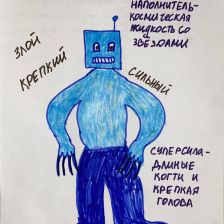 НАПОЛНИТЕЛЬ-
КОСМИЧЕСКАЯ
ЖИДКОСТЬ СО
ЗВЕЗДАМИ
ЗЛОЙ
КРЕПКИЙ
СИЛЬНЫЙ
СУПЕРСИЛА-
ДЛИНЫЕ
КОГТИ И
КРЕПКАЯ
ГОЛОВА